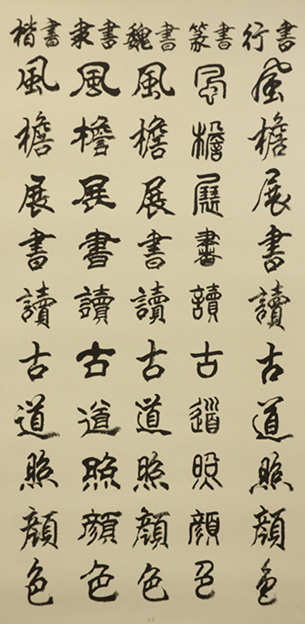 楷書 隶書 魏書 篆書 行書
風檐展書讀古道照顔色
風檐展書讀古道照顔色
風檐展書讀古道照顔色
風檐展書讀古道照顔色
風檐展書讀古道照顔色